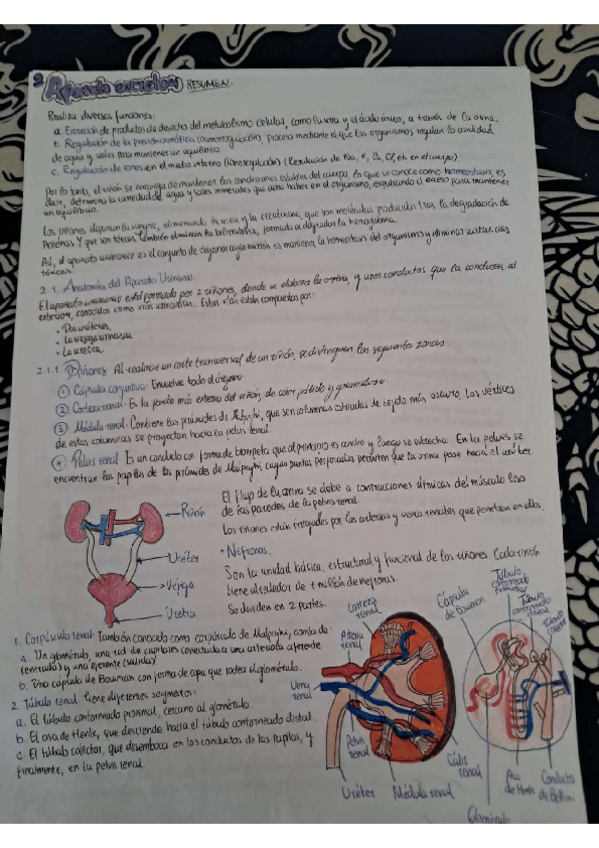 2 Aparato excretor RESUMEN.
Realiza diversas funciones:
a. Excreción de productos de desecho del metabolismo celular, como la urea y el ácido úrico, a través de la orina.
b. Regulación de la presión osmótica (osmorregulación), proceso mediante el que los organismos regulan la cantidad
de agua y sales para mantener un equilibrio.
c. Regulación de iones en el medio interno (Ionorregulación) (Regulación de Na, K, Ca, Cl, etc en el cuerpo)
Por lo tanto, el riñón se encarga de mantener las condiciones estables del cuerpo, lo que se conoce como homeostasis, es
decir, determina la cantidad de agua y sales minerales que debe haber en el organismo, expulsando el exceso para mantener
un equilibrio.
Los riñones depuran la sangre, eliminando la urea y la creatinina, que son moléculas producidas tras la degradación de
proteínas y que son tóxicas. También eliminan la bilirrubina, formada al degradar la hemoglobina.
Así, el aparato urinario es el conjunto de órganos cuya función es mantener la homeostasis del organismo y eliminar sustancias
tóxicas.
2.1. Anatomía del Aparato Urinario.
El aparato urinario está formado por 2 riñones, donde se elabora la orina, y unos conductos que la conducen al
exterior, conocidos como vías urinarias. Estas vías están compuestas por:
• Dos uréteres.
• La vejiga urinaria
• La uretra.
2.1.1 Riñones: Al realizar un corte transversal de un riñón, se distinguen las siguientes zonas:
① Cápsula conjuntiva: Envuelve todo el órgano.
② Corteza renal: Es la parte más externa del riñón, de color pálido y granuloso.
③ Médula renal: Contiene las pirámides de Malpighi, que son columnas estriadas de tejido más oscuro. Los vértices
de estas columnas se proyectan hacia la pelvis renal.
④ Pelvis renal: Es un conducto con forma de trompeta que al principio es ancho y luego se estrecha. En la pelvis se
encuentran las papilas de las pirámides de Malpighi, cuyas puntas perforadas permiten que la orina pase hacia el uréter.
El flujo de la orina se debe a contracciones rítmicas del músculo liso
de las paredes de la pelvis renal.
Los riñones están irrigados por las arterias y venas renales que penetran en ellos.
Riñón
Uréter
Vejiga
Uretra
• Nefronas.
Son la unidad básica, estructural y funcional de los riñones. Cada riñón
tiene alrededor de 1 millón de nefronas.
Se dividen en 2 partes:
1. Corpúsculo renal: También conocido como corpúsculo de Malpighi, consta de:
a. Un glomérulo, una red de capilares conectada a una arteriola aferente
(entrada) y una eferente (salida)
b. Una cápsula de Bowman con forma de copa que rodea el glomérulo.
2. Túbulo renal: tiene diferentes segmentos:
a. El túbulo contorneado proximal, cercano al glomérulo.
b. El asa de Henle, que desciende hacia el túbulo contorneado distal.
c. El túbulo colector, que desemboca en los conductos de las papilas, y
finalmente, en la pelvis renal.
Corteza renal
Arteria renal
Vena renal
Pelvis renal
Uréter
Médula renal
Cáliz renal
Cápsula de Bowman
Túbulo contorneado proximal
Túbulo contorneado
Túbulo
Asa de Henle
Conducto de Bellini
Glomérulo